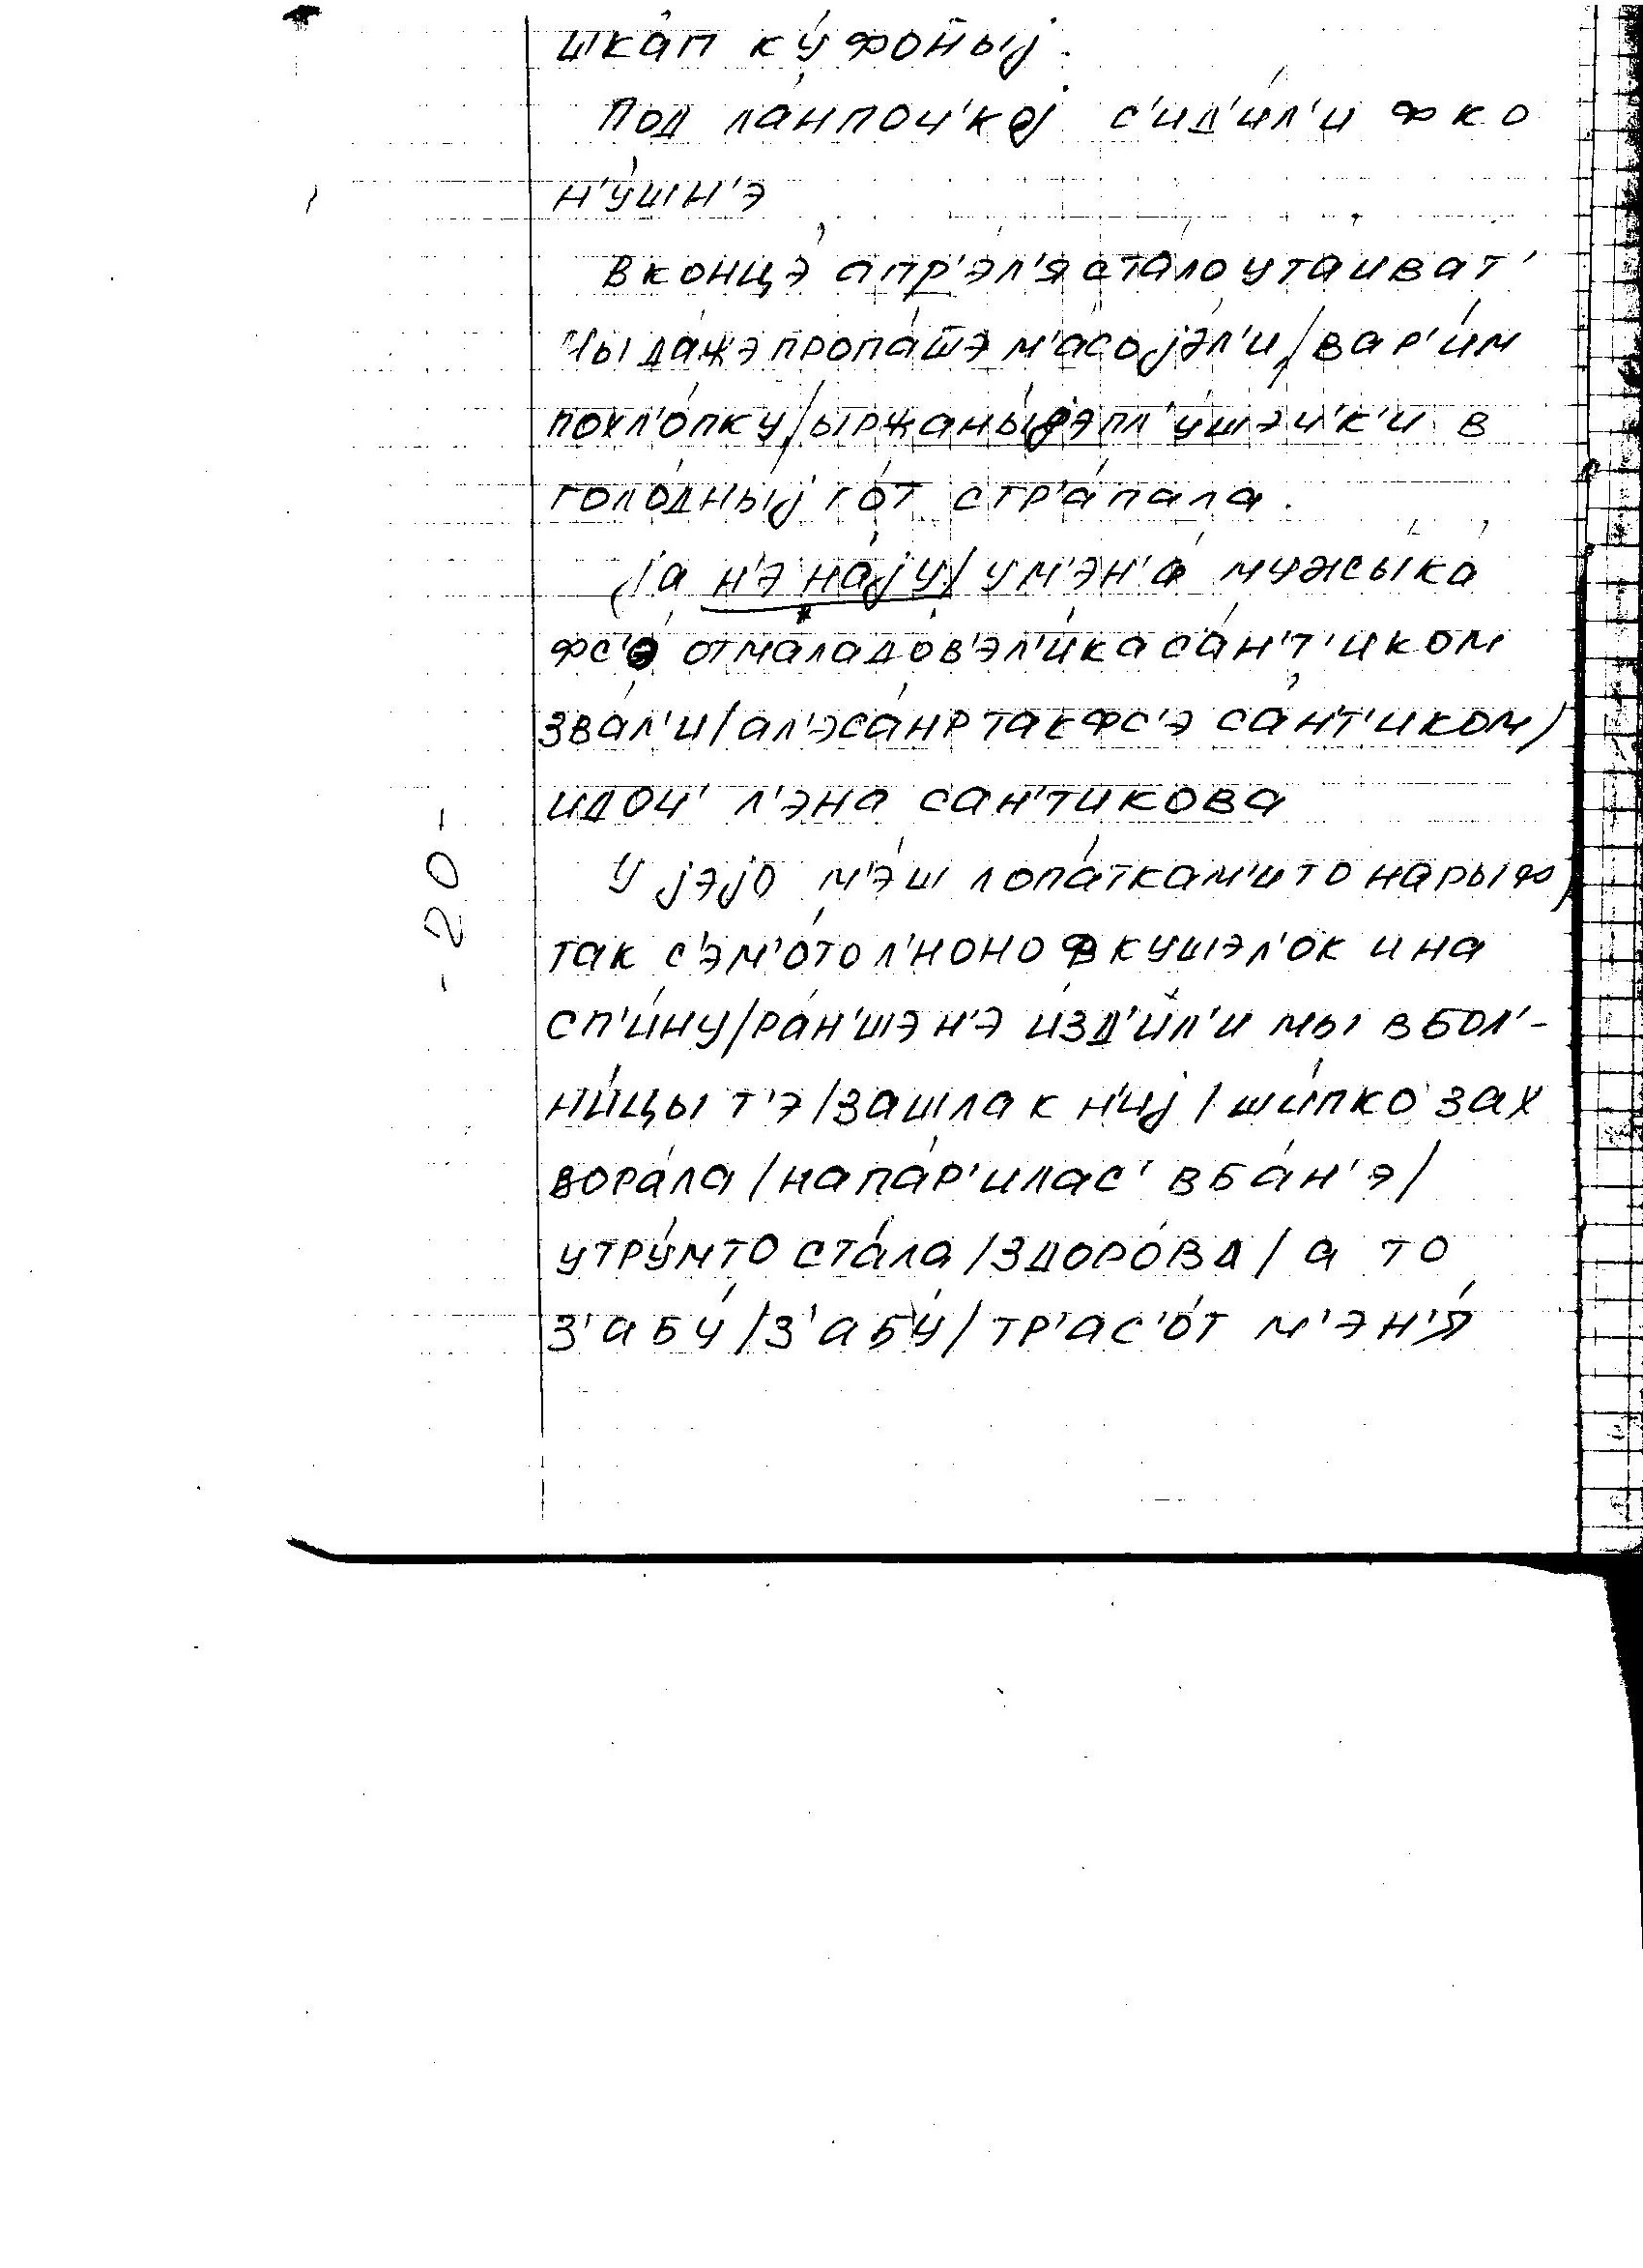 шка́п ку́фон̄ыj.
Под ла́нпоч'коj с'ид'и́л'и фко
н'у́шн'э
в концэ́ апр'э́л'я ста́ло ута́иват'
Мы да́жэ пропа́ш̄э м'а́со jэ́л'и/вар'и́м
похл'о́пку/ы ржаны́jэ пл'у́шэч'к'и в
голо́дныj го́т стр'а́пала.
jа н'э на́jу/ у м'эн'а́ мужыка́
фс'э́ от мала до в'эл'и́ка са́н'т'иком
зва́л'и/ал'эса́нр так фс'э са́н'т'иком/
и доч' л'э́на сан'тикова
У jэjо́ м'эш лопа́ткам'и то нары́ф/
так с'э́м'о то л'ноно в кушэл'о́к и на
сп'и́ну/ра́н'шэ н'э и́зд'ил'и мы в бол'-
ни́цы т'э/зашла́ к н'иj/ши́пко зах
вора́ла/напа́р'илас' в ба́н'э/
утру́м то ста́ла/здоро́ва/а то
з'абу́/з'абу́/тр'ас'о́т м'эн'я́
- 20 -